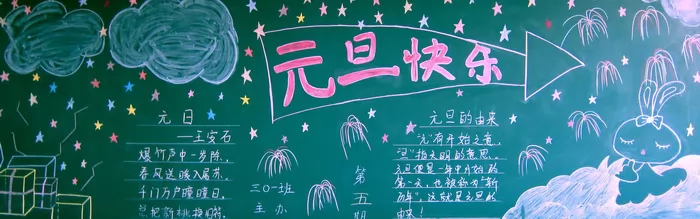 元旦快乐
元日
——王安石
爆竹声中一岁除,
春风送暖入屠苏.
千门万户曈曈日,
总把新桃换旧符.
三〇一班
主办
第五期
元旦的由来
"元"有开始之意,
"旦"指天明的意思。
元旦便是一年中开始的
第一天,也被称为"新
历年",这就是元旦的
由来!